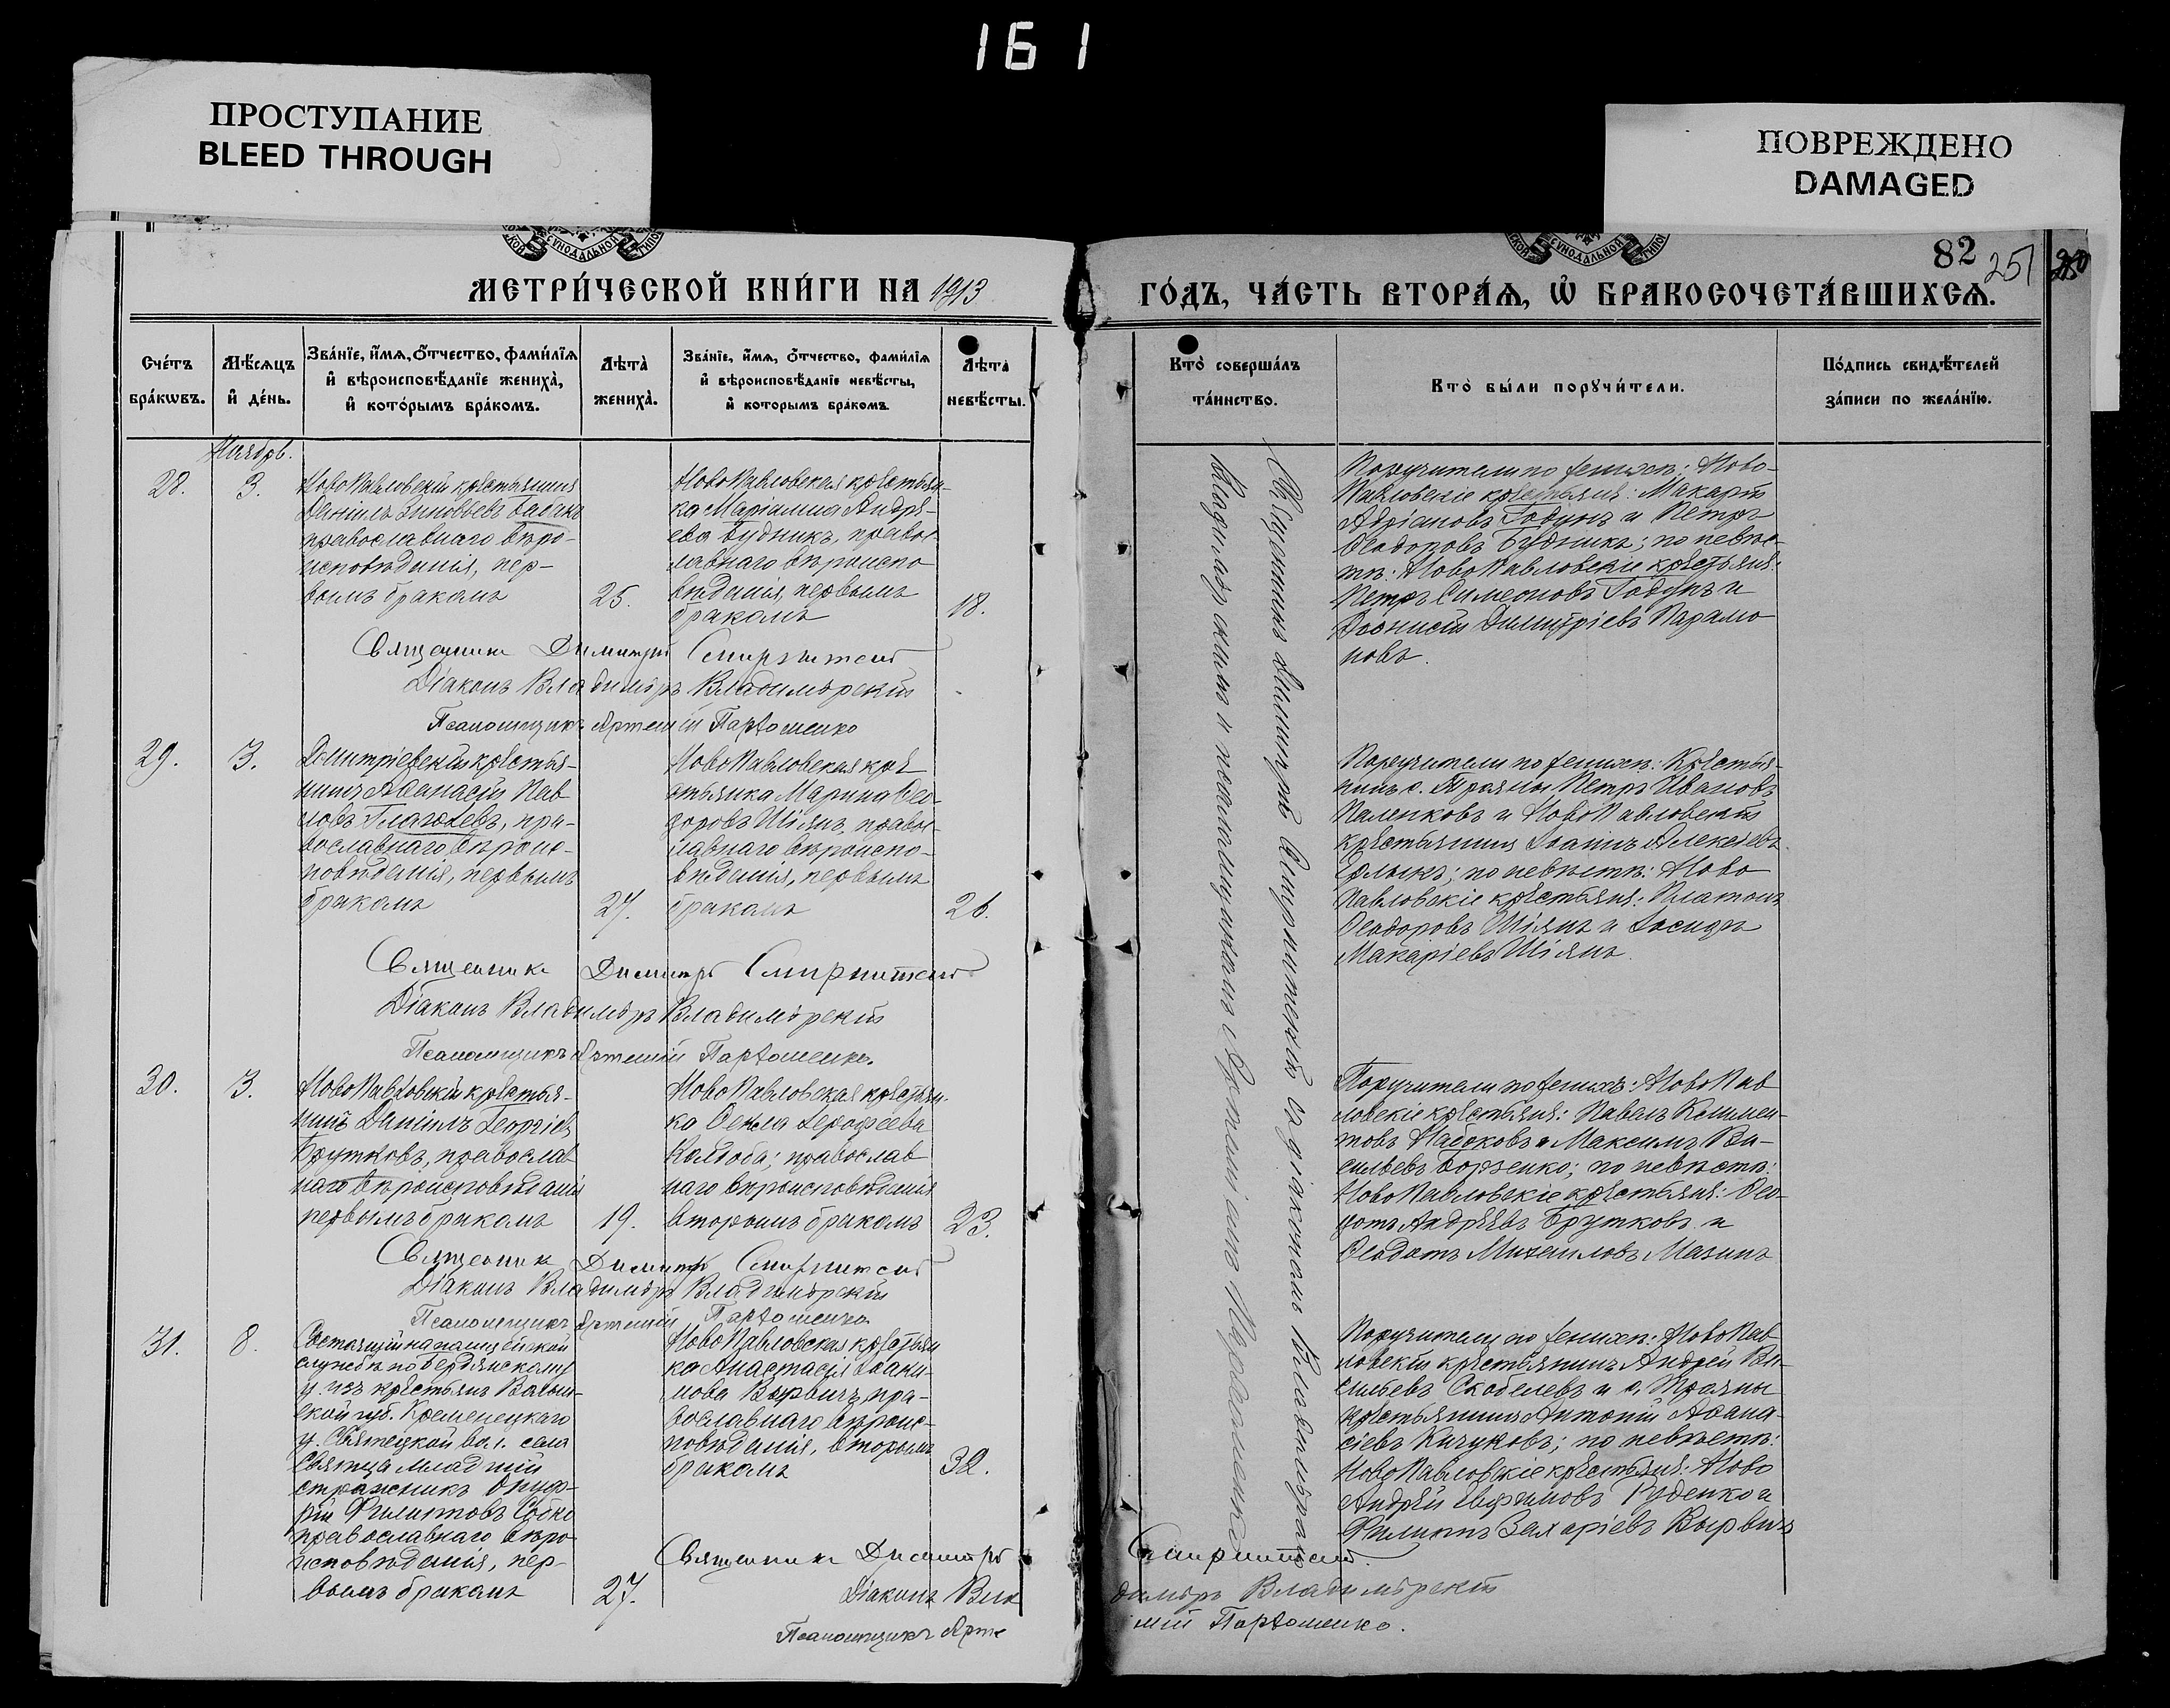 161
ПРОСТУПАНИЕ
BLEED THROUGH
ПОВРЕЖДЕНО
DAMAGED
82
251
МЕТРИ́ЧЕСКОЙ КНИ́ГИ НА 1913
ГО́ДЪ, ЧА́СТЬ ВТОРА́Ѧ, Ѡ҆ БРАКОСОЧЕТА́ВШИХСѦ.
Сче́тъ бра́кѡвъ.
Мѣ́сѧцъ и҆ де́нь.
Зва́нїе, и҆́мѧ, ѻ҆́тчество, фами́лїѧ
и҆ вѣроисповѣ́данїе жениха̀,
и҆ кото́рымъ бра́комъ.
Лѣта̀ жениха̀.
Зва́нїе, и҆́мѧ, ѻ҆́тчество, фами́лїѧ
и҆ вѣроисповѣ́данїе невѣ́сты,
и҆ которымъ бра́комъ.
Лѣта̀ невѣ́сты.
Кто̀ соверша́лъ та́инство.
Кто̀ бы́ли порꙋчи́тели.
По́дпись свидѣ́телей
за́писи по жела́нїю.
Ноябрь.
28.
3.
НовоПавловскій крестьянинъ
Даніилъ Зиновьевъ
православнаго вѣро-
исповѣданія, пер-
вымъ бракомъ
25.
НовоПавловская крестьян-
ка Маріамна Андре-
ева Будникъ, правос-
лавнаго вѣроиспо
вѣданія, первымъ
бракомъ
18.
Поручители по женихѣ: Ново-
Павловскіе крестьяне: Макарій
Адріановъ Годунъ и Петръ
Ѳеодоровъ Будникъ; по невѣс-
тѣ: НовоПавловскіе крестьяне:
Петръ Симеоновъ Годунъ и
Діонисій Димитріевъ Парамо
новъ.
Священникъ Димитрій
Діаконъ Владиміръ Владимірскій
Псаломщикъ Артемій Парѳоменко
29.
3.
Дмитріевскій крестья-
нинъ Аѳанасій Пав
ловъ, пра-
вославнаго вѣроис-
повѣданія, первымъ
бракомъ
27.
НовоПавловская кре
стьянка Марина Ѳео-
дорова Шіянъ, правос-
лавнаго вѣроиспо-
вѣданія, первымъ
бракомъ
26.
Поручители по женихѣ: Крестья-
нинъ с. Трояны Петръ Ивановъ
Паленковъ и НовоПавловскій
крестьянинъ Іоаннъ Алексѣевъ
по невѣстѣ: Ново
Павловскіе крестьяне: Платонъ
Ѳеодоровъ Шіянъ и Іосифъ
Макаріевъ Шіянъ.
Священникъ Димитрій
Діаконъ Владиміръ Владимірскій
Псаломщикъ Артемій Парѳоменко.
30.
3.
НовоПавловскій крестья-
нинъ Даніилъ Георгіев
Брутковъ, православ
наго вѣроисповѣданія
первымъ бракомъ
19.
НовоПавловская крестьян-
ка Ѳекла Іероѳеева
православ
наго вѣроисповѣданія
вторымъ бракомъ
23.
Поручители по женихѣ: НовоПав
ловскіе крестьяне: Павелъ Климен-
товъ Набоковъ и Максимъ Ва-
сильевъ Борзенко; по невѣстѣ:
НовоПавловскіе крестьяне: Ѳео-
дотъ Андреевъ Брутковъ и
Ѳеодотъ Михаиловъ Мазинъ
Священникъ Димитрій
Діаконъ Владиміръ Владимірскій
Псаломщикъ Артемій Парѳоменко
31.
8.
Состоящій на полицейской
службѣ по Бердянскому
у. изъ крестьянъ Волын-
ской губ. Кременецкаго
у. Святецкой вол. села
Святца младшій
стражникъ Онуф-
рій Филипповъ
православнаго вѣро-
исповѣданія, пер-
вымъ бракомъ
27.
НовоПавловская крестьян
ка Анастасія Іоаки-
мова Вырвичъ, пра-
вославнаго вѣроис-
повѣданія, вторымъ
бракомъ
32.
Поручители по женихѣ: НовоПав
ловскій крестьянинъ Андрей Ва-
сильевъ Скобелевъ и с. Трояны
крестьянинъ Антоній Аѳана-
сіевъ Кичуковъ; по невѣстѣ:
НовоПавловскіе крестьяне: Ново
Андрей Евфимовъ Руденко и
Филиппъ Захаріевъ Вырвичъ
Священникъ Димитрій
Діаконъ Владиміръ Владимірскій
Псаломщикъ Артемій Парѳоменко.
Священникъ Димитрій съ діакономъ Владиміромъ
Владимірскимъ и псаломщикомъ Артеміемъ Парѳоменко